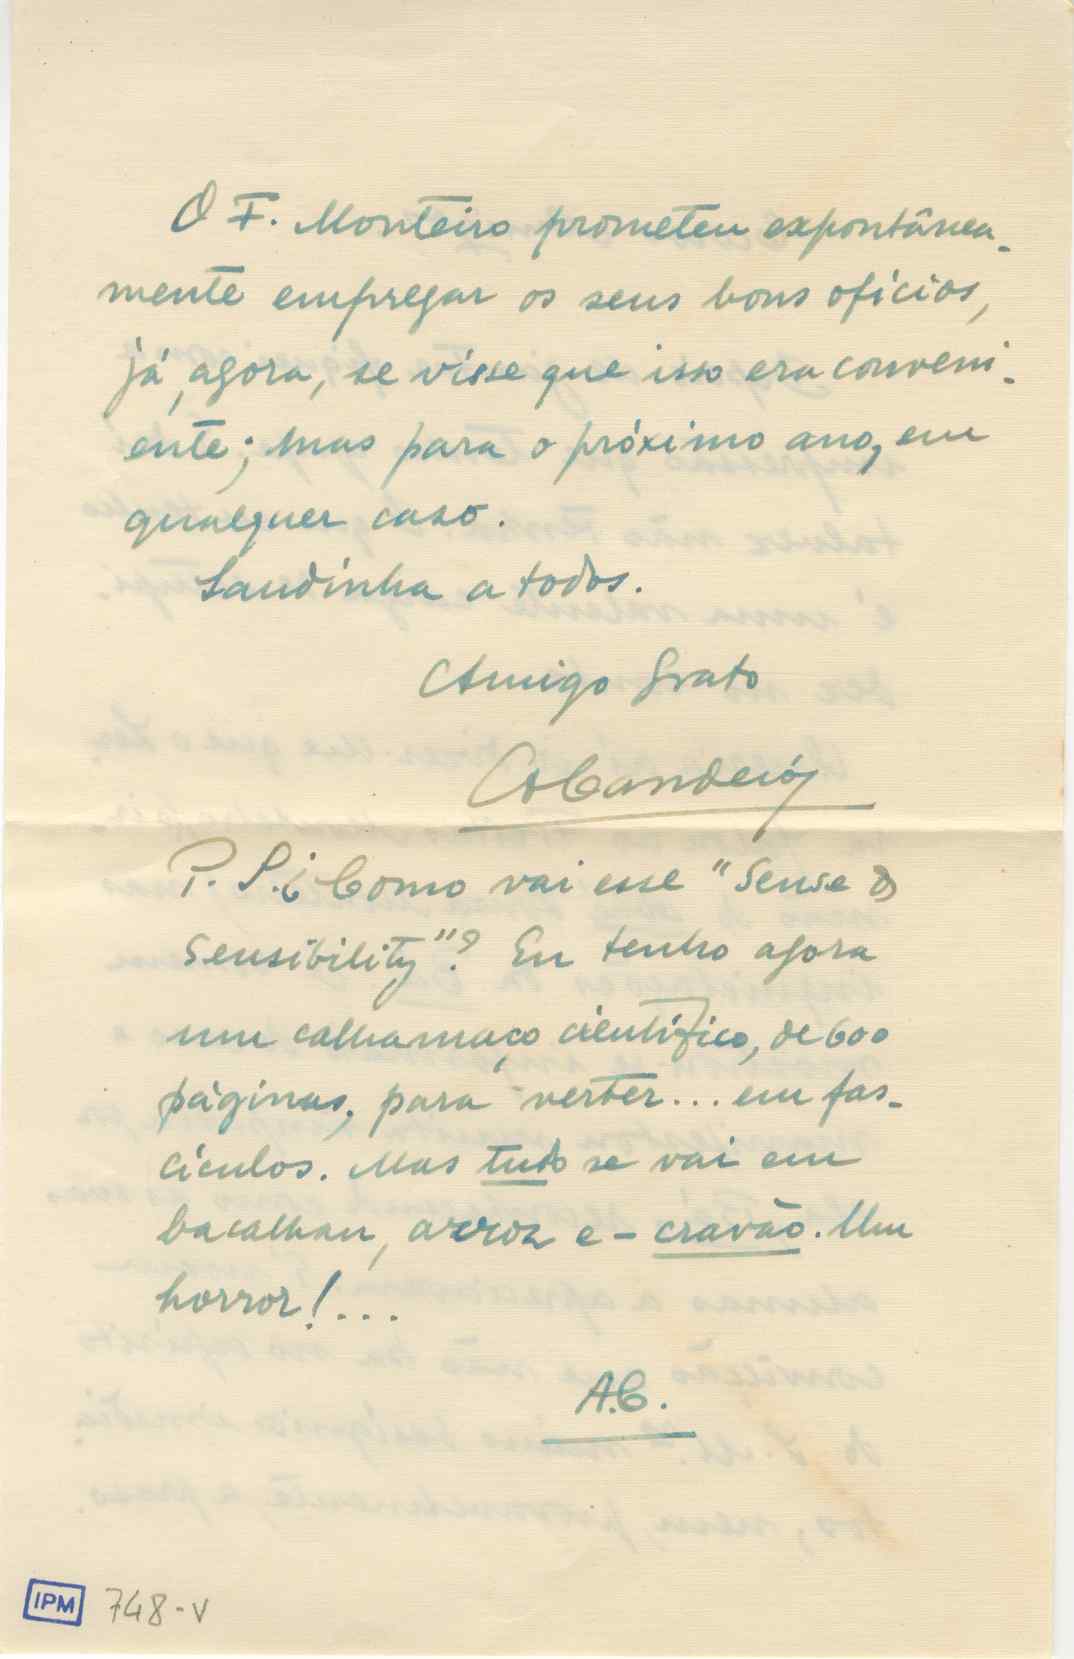 O F. Monteiro prometeu expontânea-
mente empregar os seus bons ofícios,
já, agora, se visse que isso era conveni-
ente; mas para o próximo ano, em
qualquer caso.
Saudinha a todos.
Amigo Grato
P. S. ¿Como vai esse "Sense &
Sensibility"? Eu tenho agora
um calhamaço científico, de 600
páginas, para verter... em fas-
cículos. Mas tudo se vai em
bacalhau, arroz e - cravão. Um
horror!...
A.C.
IPM 748-V